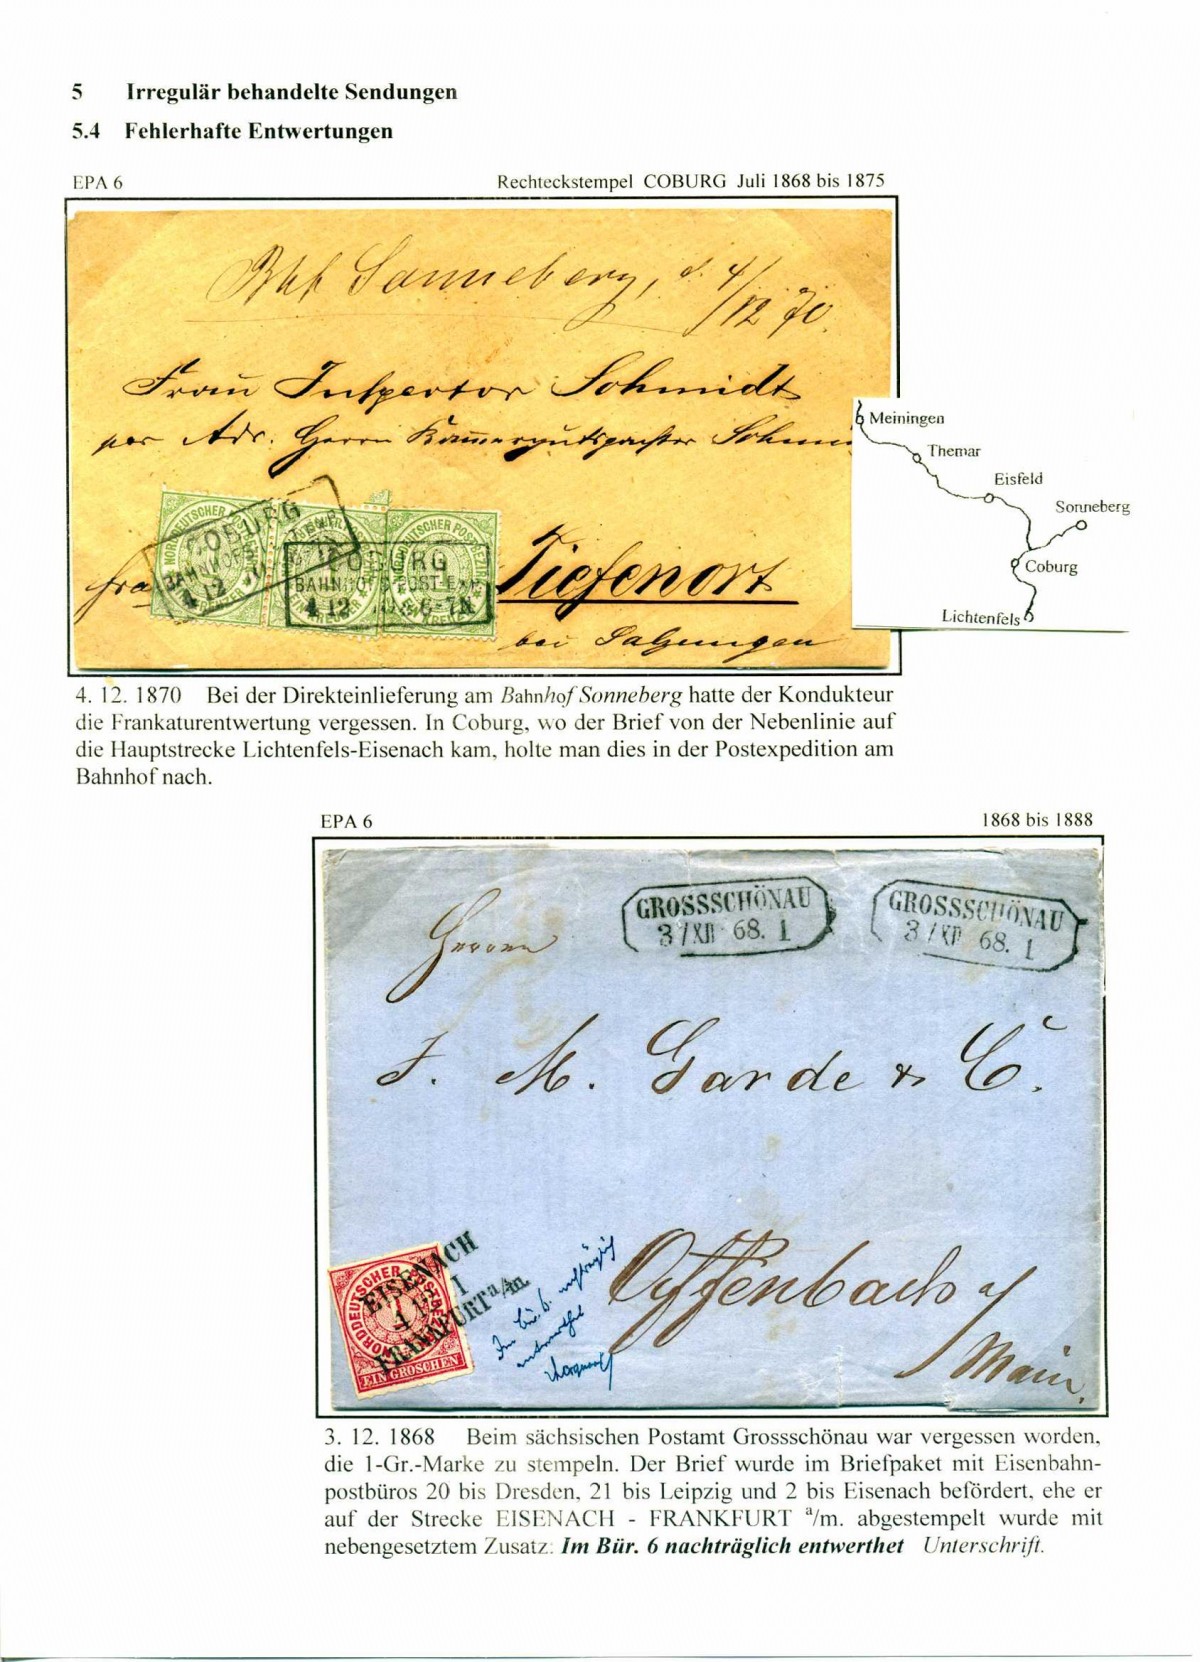 5 Irregulär behandelte Sendungen
5.4 Fehlerhafte Entwertungen
EPA 6 Rechteckstempel COBURG Juli 1868 bis 1875
Bhf Sonneberg, d. 4/12 70.
Frau Inspector Schmidt
per Adr. Herrn Kammergutspachter Schmi
fra
Tiefenort
bei Salzungen
NORDDEUTSCHER POSTBEZIRK
COBURG
BAHNHOFS
4 12
COBURG
BAHNHOFS POST-EXP
4 12 6-7N
Meiningen
Themar
Eisfeld
Sonneberg
Coburg
Lichtenfels
4. 12. 1870 Bei der Direkteinlieferung am Bahnhof Sonneberg hatte der Kondukteur
die Frankaturentwertung vergessen. In Coburg, wo der Brief von der Nebenlinie auf
die Hauptstrecke Lichtenfels-Eisenach kam, holte man dies in der Postexpedition am
Bahnhof nach.
EPA 6 1868 bis 1888
GROSSSCHÖNAU
3/XII 68. 1
GROSSSCHÖNAU
3/XII 68. 1
Herren
J. M. Garde & C.
Offenbach a/
Main.
NORDDEUTSCHER POSTBEZIRK
1
EIN GROSCHEN
EISENACH
4 12 I
FRANKFURT a/m.
Im Bür. 6. nachträglich
entwerthet
3. 12. 1868 Beim sächsischen Postamt Grossschönau war vergessen worden,
die 1-Gr.-Marke zu stempeln. Der Brief wurde im Briefpaket mit Eisenbahn-
postbüros 20 bis Dresden, 21 bis Leipzig und 2 bis Eisenach befördert, ehe er
auf der Strecke EISENACH - FRANKFURT a/m. abgestempelt wurde mit
nebengesetztem Zusatz: Im Bür. 6 nachträglich entwerthet Unterschrift.